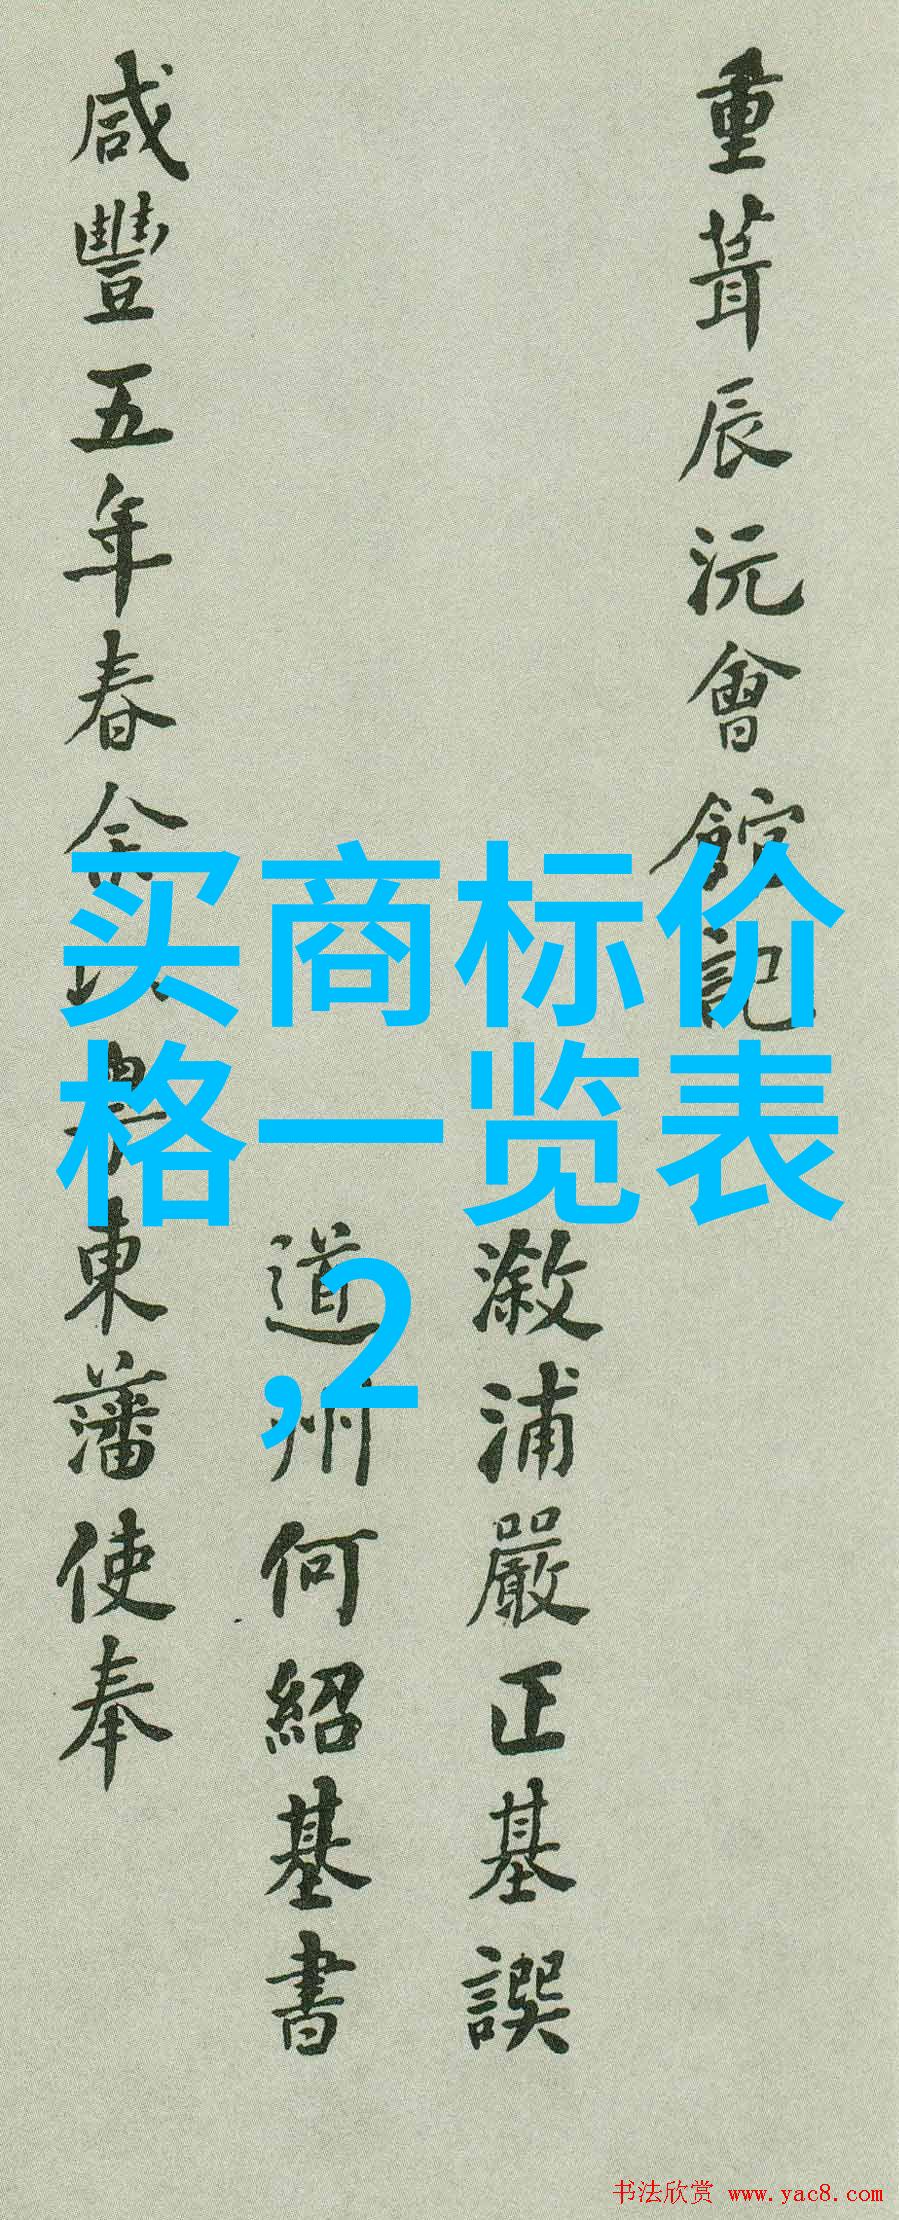 重葺辰沅會館記
漵浦嚴正基譔
道州何紹基書
咸豐五年春余東藩使奉
买商标价
格一览表
,2
书法欣赏 www.yac8.com